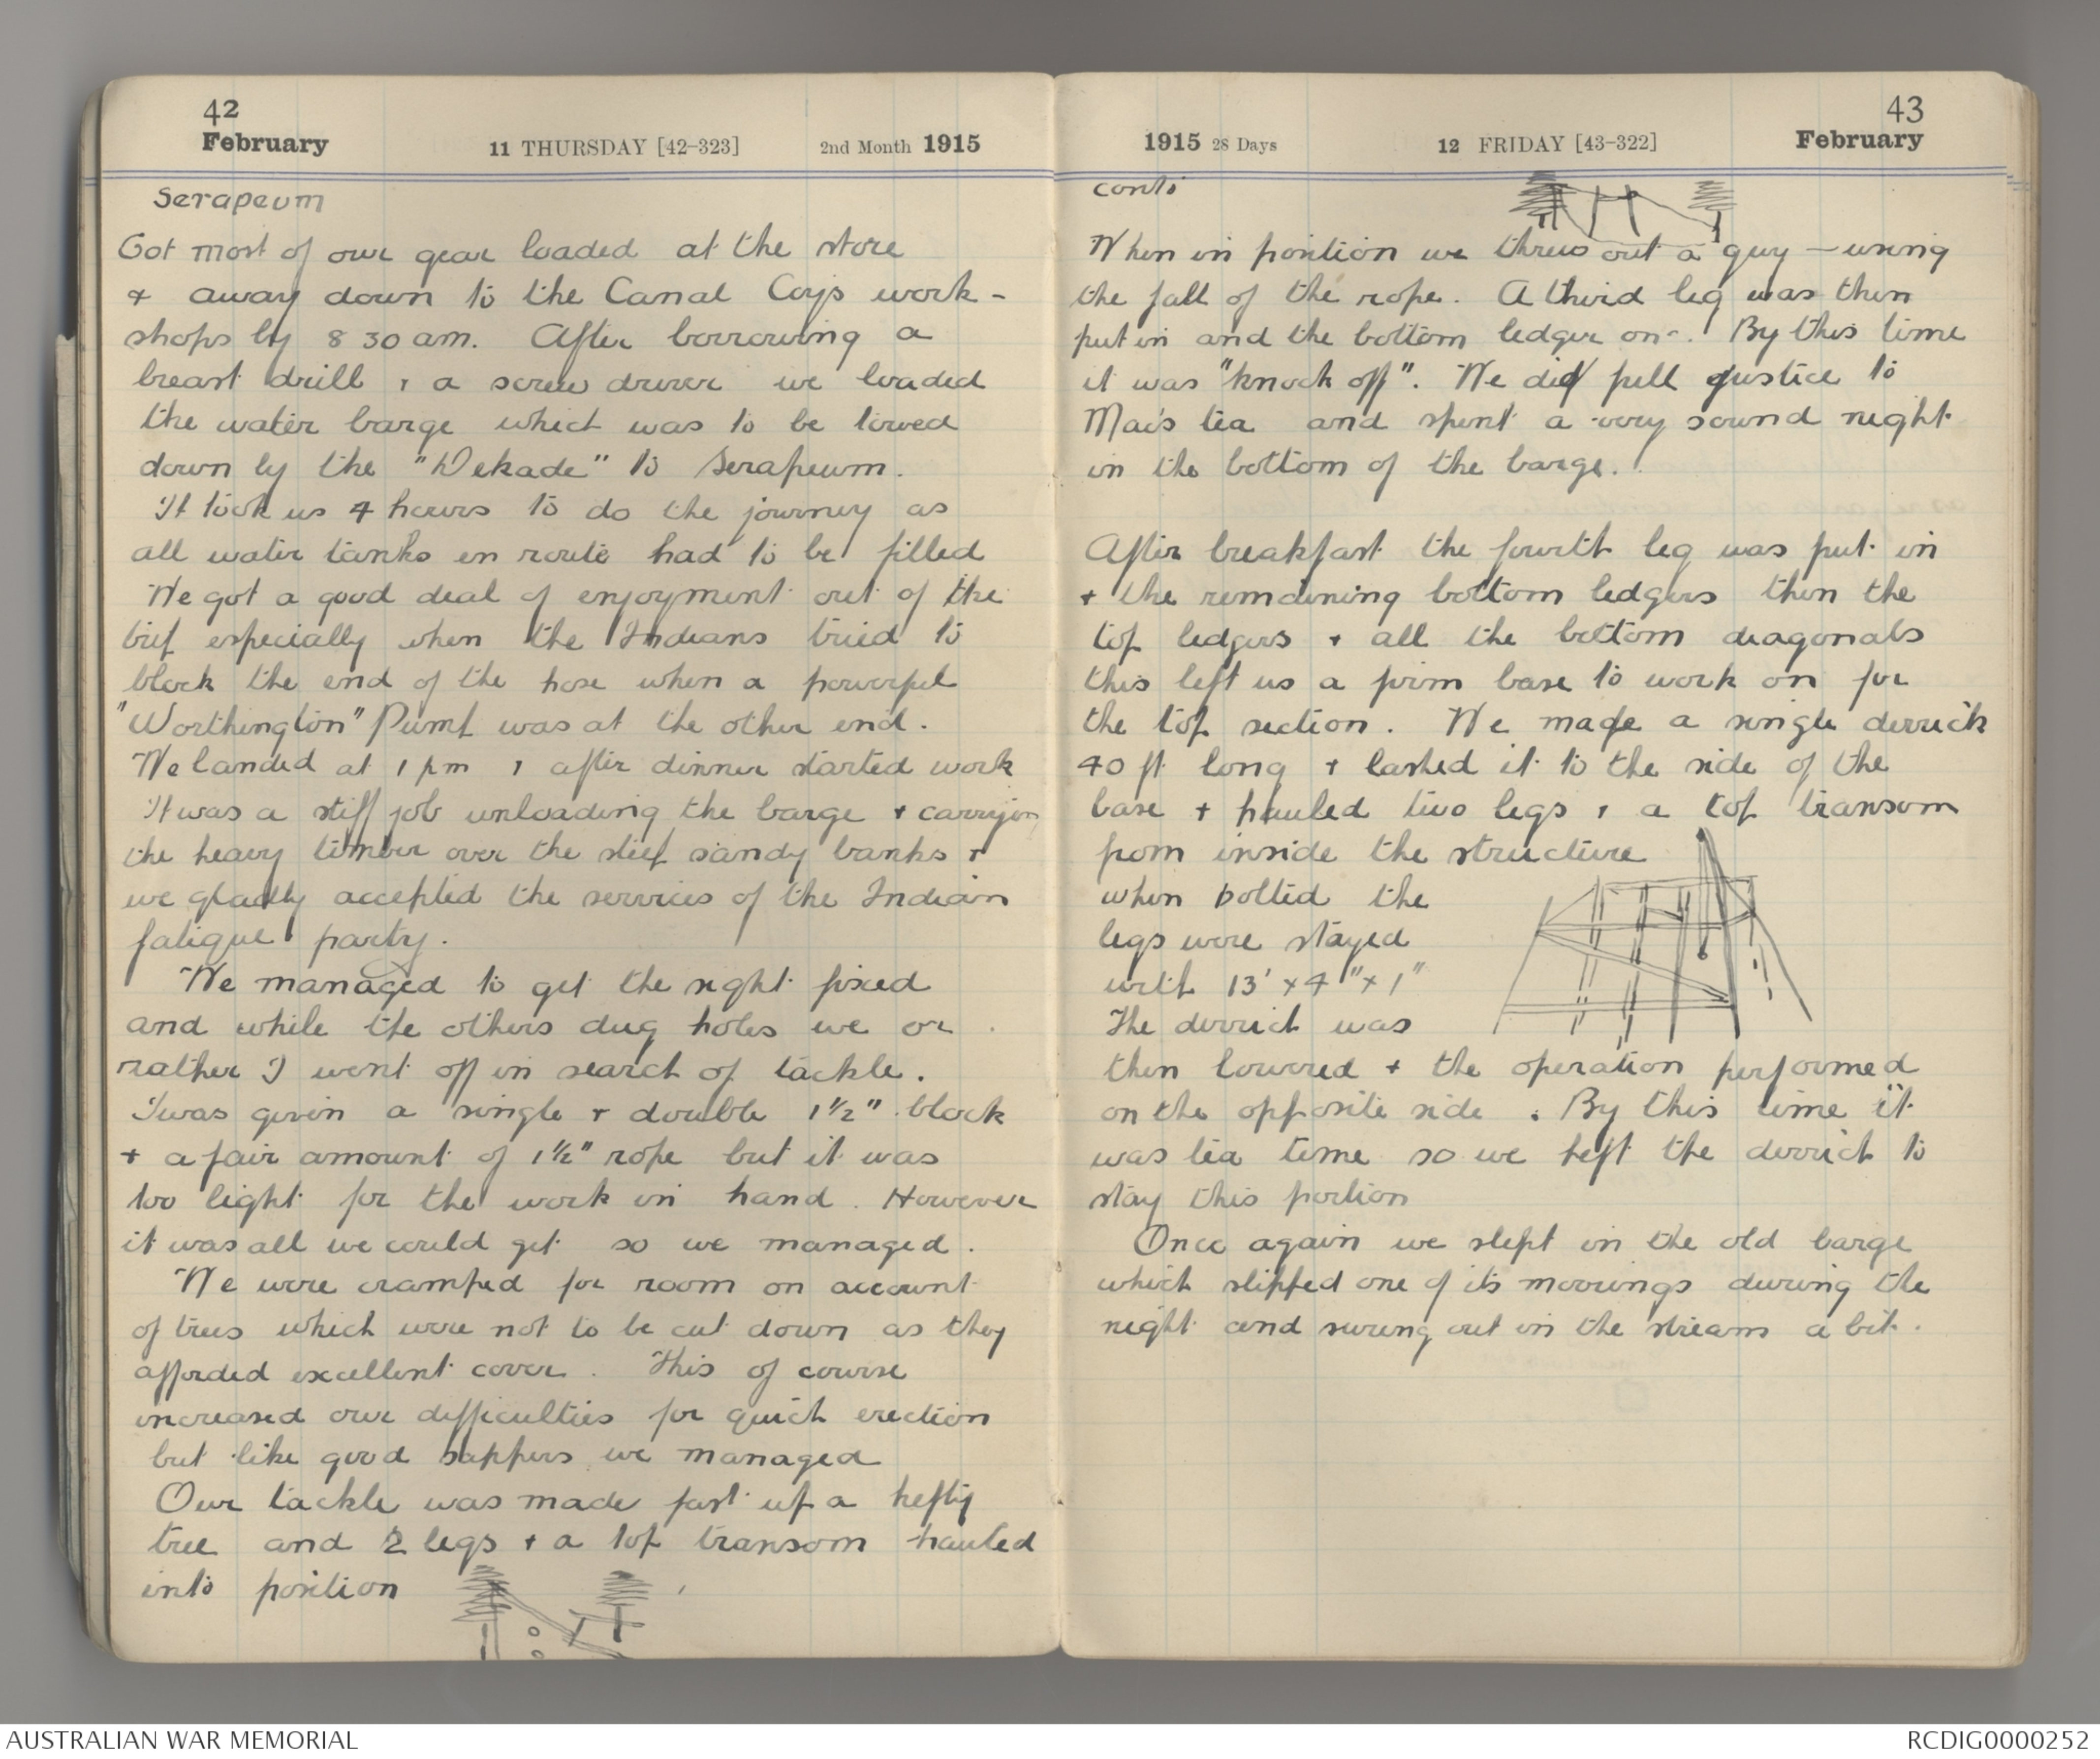 42
February
11 THURSDAY [42-323]
2nd Month 1915
Serapeum
Got most of our gear loaded at the store
+ away down to the Canal Coys work-
shops by 8 30 am. After borrowing a
breast drill + a screw driver we loaded
the water barge which was to be towed
down by the "Dekade" to Serapeum.
It took us 4 hours to do the journey as
all water tanks en route had to be filled
We got a good deal of enjoyment out of the
trip especially when the Indians tried to
block the end of the hose when a powerful
"Worthington" Pump was at the other end.
We landed at 1 pm + after dinner started work
It was a stiff job unloading the barge + carrying
the heavy timber over the steep sandy banks +
we gladly accepted the services of the Indian
fatigue party.
We managed to get the sight fixed
and while the others dug holes we or
rather I went off in search of tackle.
I was given a single + double 1½" block
+ a fair amount of 1½" rope but it was
too light for the work in hand. However
it was all we could get so we managed.
We were cramped for room on account
of trees which were not to be cut down as they
afforded excellent cover. This of course
increased our difficulties for quick erection
but like good sappers we managed
Our tackle was made fast up a hefty
tree and 2 legs + a top transom hauled
into position
43
1915 28 Days
12 FRIDAY [43-322]
February
contd
When in position we threw out a guy - using
the fall of the rope. A third leg was then
put in and the bottom ledger on -. By this time
it was "knock off". We did full justice to
Mac's tea and spent a very sound night
in the bottom of the barge.
After breakfast the fourth leg was put in
+ the remaining bottom ledgers then the
top ledgers + all the bottom diagonals
this left us a firm base to work on for
the top section. We made a single derrick
40 ft long + lashed it to the side of the
base + hauled two legs + a top transom
from inside the structure
when bolted the
legs were stayed
with 13' x 4" x 1"
The derrick was
then lowered + the operation performed
on the opposite side. By this time it
was tea time so we left the derrick to
stay this portion
Once again we slept in the old barge
which slipped one of its moorings during the
night and swung out in the stream a bit.
AUSTRALIAN WAR MEMORIAL
RCDIG0000252